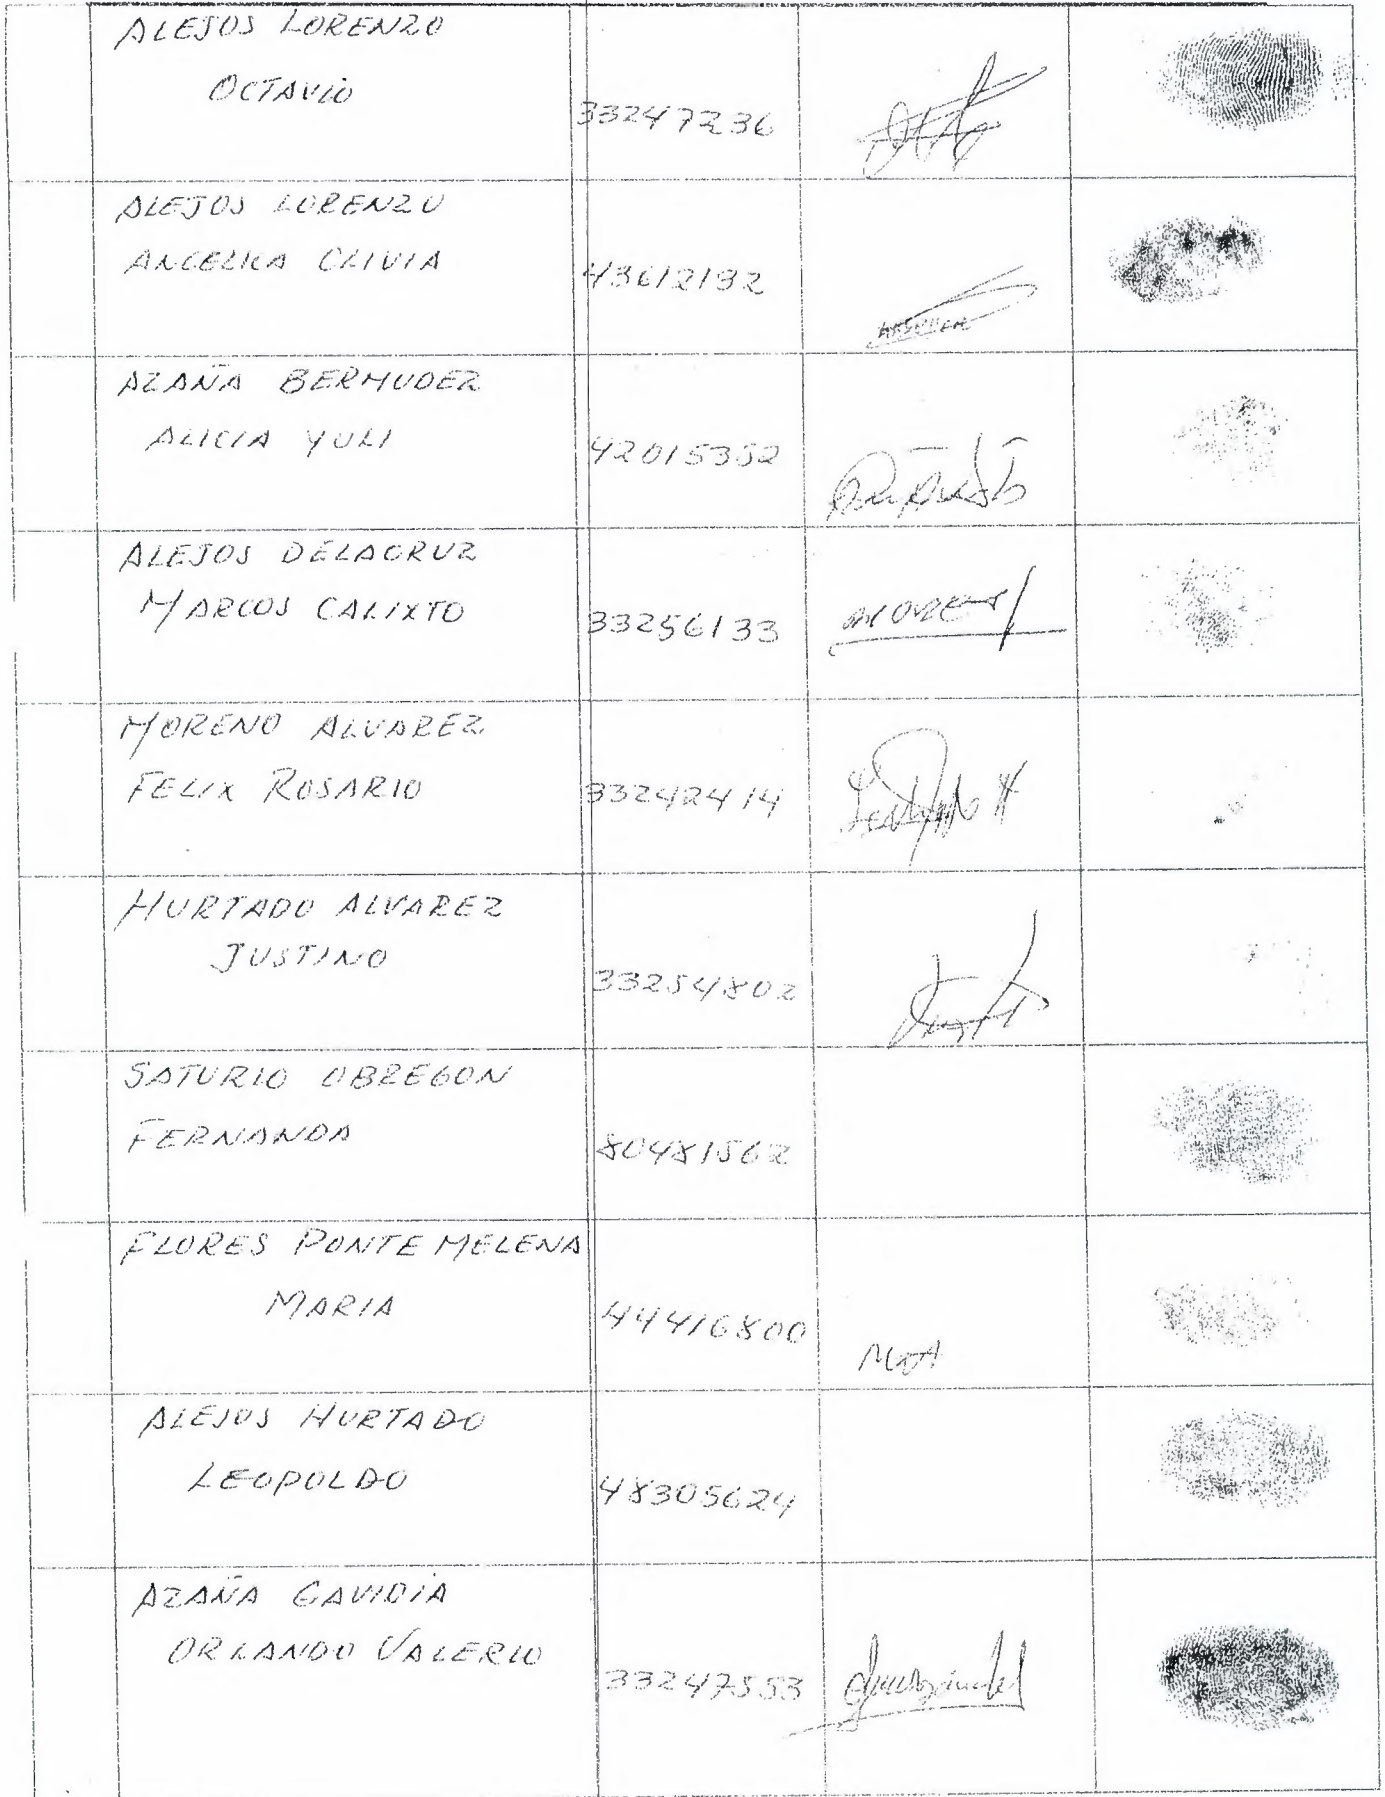 ALEJOS LORENZO
OCTAVIO
33247236
ALEJOS LORENZO
ANGELICA CLIVIA
43612192
AZAÑA BERMUDEZ
ALICIA YULI
42015352
ALEJOS DELACRUZ
MARCOS CALIXTO
33256133
MORENO ALVAREZ
FELIX ROSARIO
33242414
HURTADO ALVAREZ
JUSTINO
33254802
SATURIO OBREGON
FERNANDA
80481562
FLORES PONTE MELENA
MARIA
44416800
ALEJOS HURTADO
LEOPOLDO
48305624
AZAÑA GAVIDIA
ORLANDO VALERIO
33247553